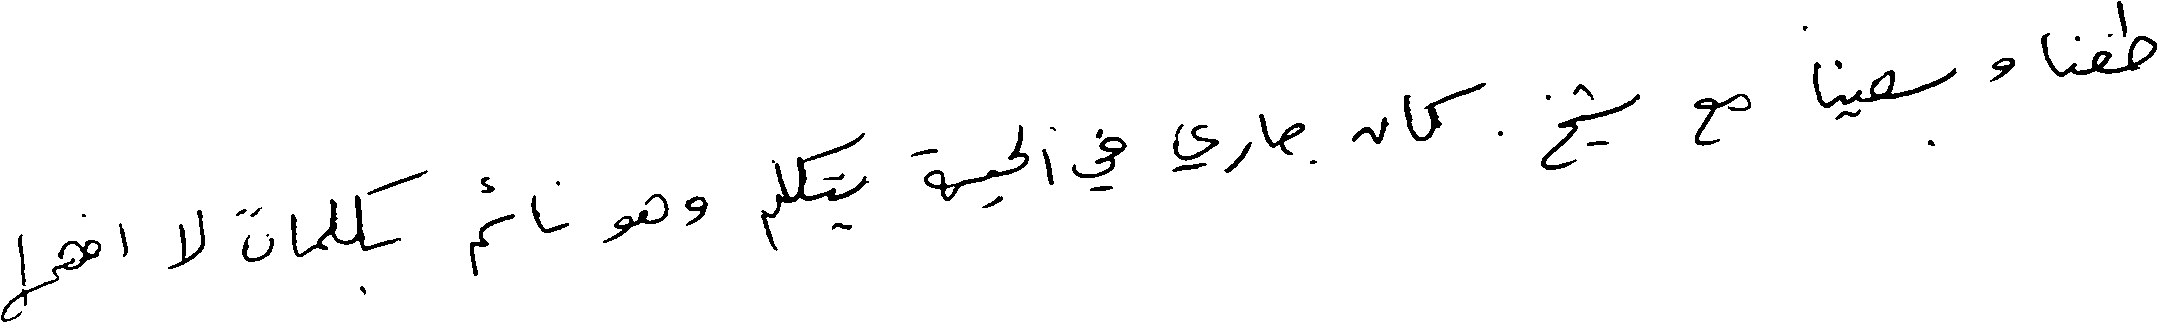 طفنا و سعينا مع شيخ. كان جاري في الخيمة يتكلم وهو نائم بكلمات لا افهمها